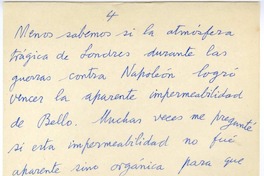 4
Menos sabemos si la atmósfera
trágica de Londres durante las
guerras contra Napoleón logró
vencer la aparente impermeabilidad
de Bello. Muchas veces me pregunté
si esta impermeabilidad no fué
aparente sino orgánica para que